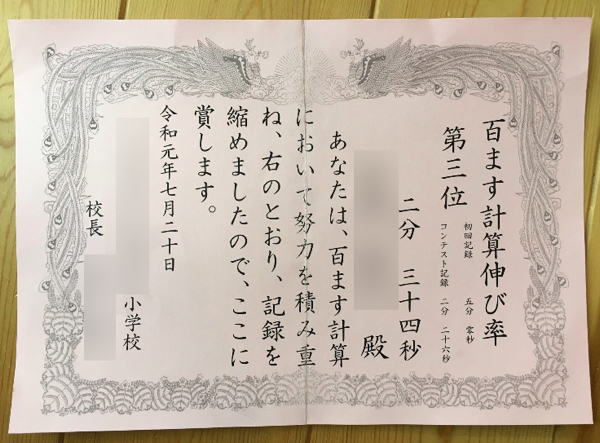 百ます計算伸び率
第三位
初回記録 五分 零秒
コンテスト記録 二分 二十六秒
二分 三十四秒
殿
あなたは、百ます計算
において努力を積み重
ね、右のとおり、記録を
縮めましたので、ここに
賞します。
令和元年七月二十日
小学校
校長